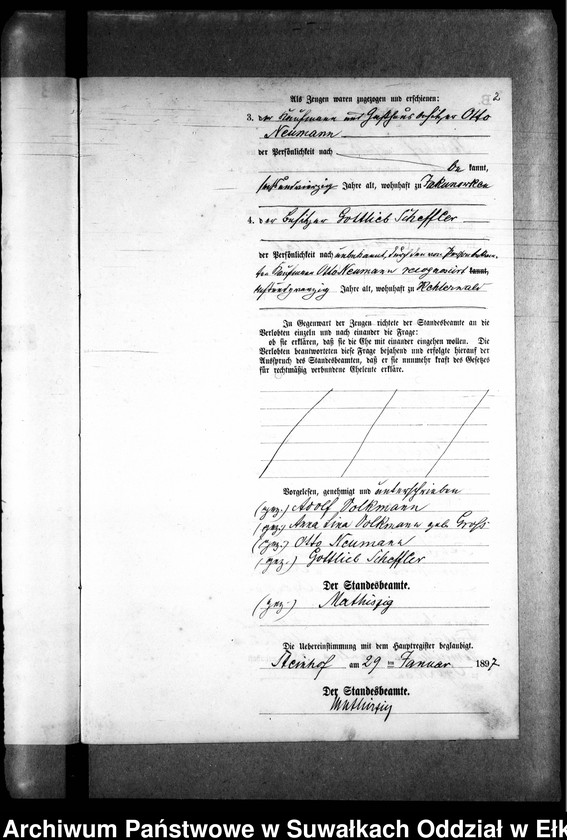 2
Als Zeugen waren zugezogen und erschienen:
3. der Kaufmann und Gasthausbesitzer Otto
Neumann
der Persönlichkeit nach
be kannt,
Jahre alt, wohnhaft zu Jakunowken
4. der Besitzer Gottlieb Scheffler
der Persönlichkeit nach unbekannt, durch den
Kaufmann Otto Neumann recognoscirt kannt,
Jahre alt, wohnhaft zu
In Gegenwart der Zeugen richtete der Standesbeamte an die
Verlobten einzeln und nach einander die Frage:
ob sie erklären, daß sie die Ehe mit einander eingehen wollen. Die
Verlobten beantworteten diese Frage bejahend und erfolgte hierauf der
Ausspruch des Standesbeamten, daß er sie nunmehr kraft des Gesetzes
für rechtmäßig verbundene Eheleute erkläre.
Vorgelesen, genehmigt und unterschrieben
(gez.) Adolf Volkmann
(gez.) Anna Lina Volkmann geb. Groß
(gez.) Otto Neumann
(gez.) Gottlieb Scheffler
Der Standesbeamte.
(gez.) Mathiszig
Die Uebereinstimmung mit dem Hauptregister beglaubigt.
Steinhof am 29 ten Januar 1897
Der Standesbeamte.
Mathiszig
Archiwum Państwowe w Suwałkach Oddział w Ełk